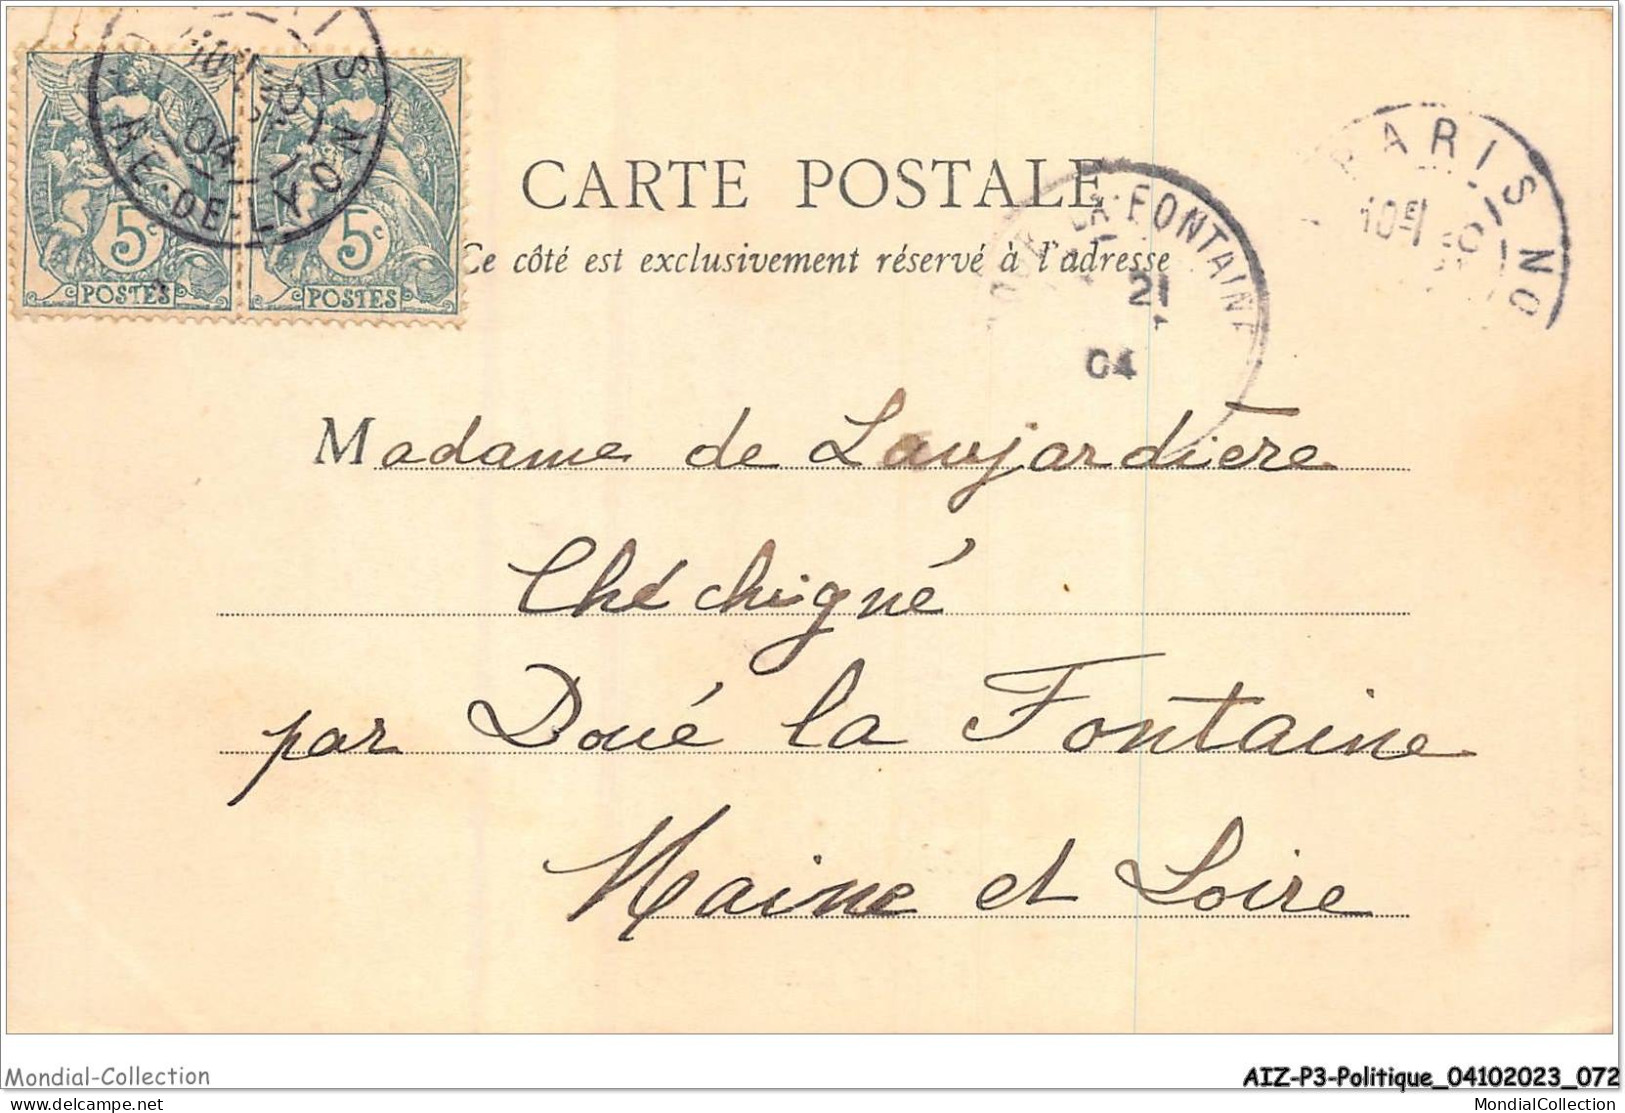 CARTE POSTALE
Ce côté est exclusivement réservé à l'adresse
PARIS
GARE-DE-LYON
04
5c
POSTES
5c
POSTES
LA FONTAINE
21
04
PARIS
10E
Madame de Laujardière
Chéchigné
par Doué la Fontaine
Maine et Loire
Mondial-Collection
AIZ-P3-Politique_04102023_072
delcampe.net
MondialCollection